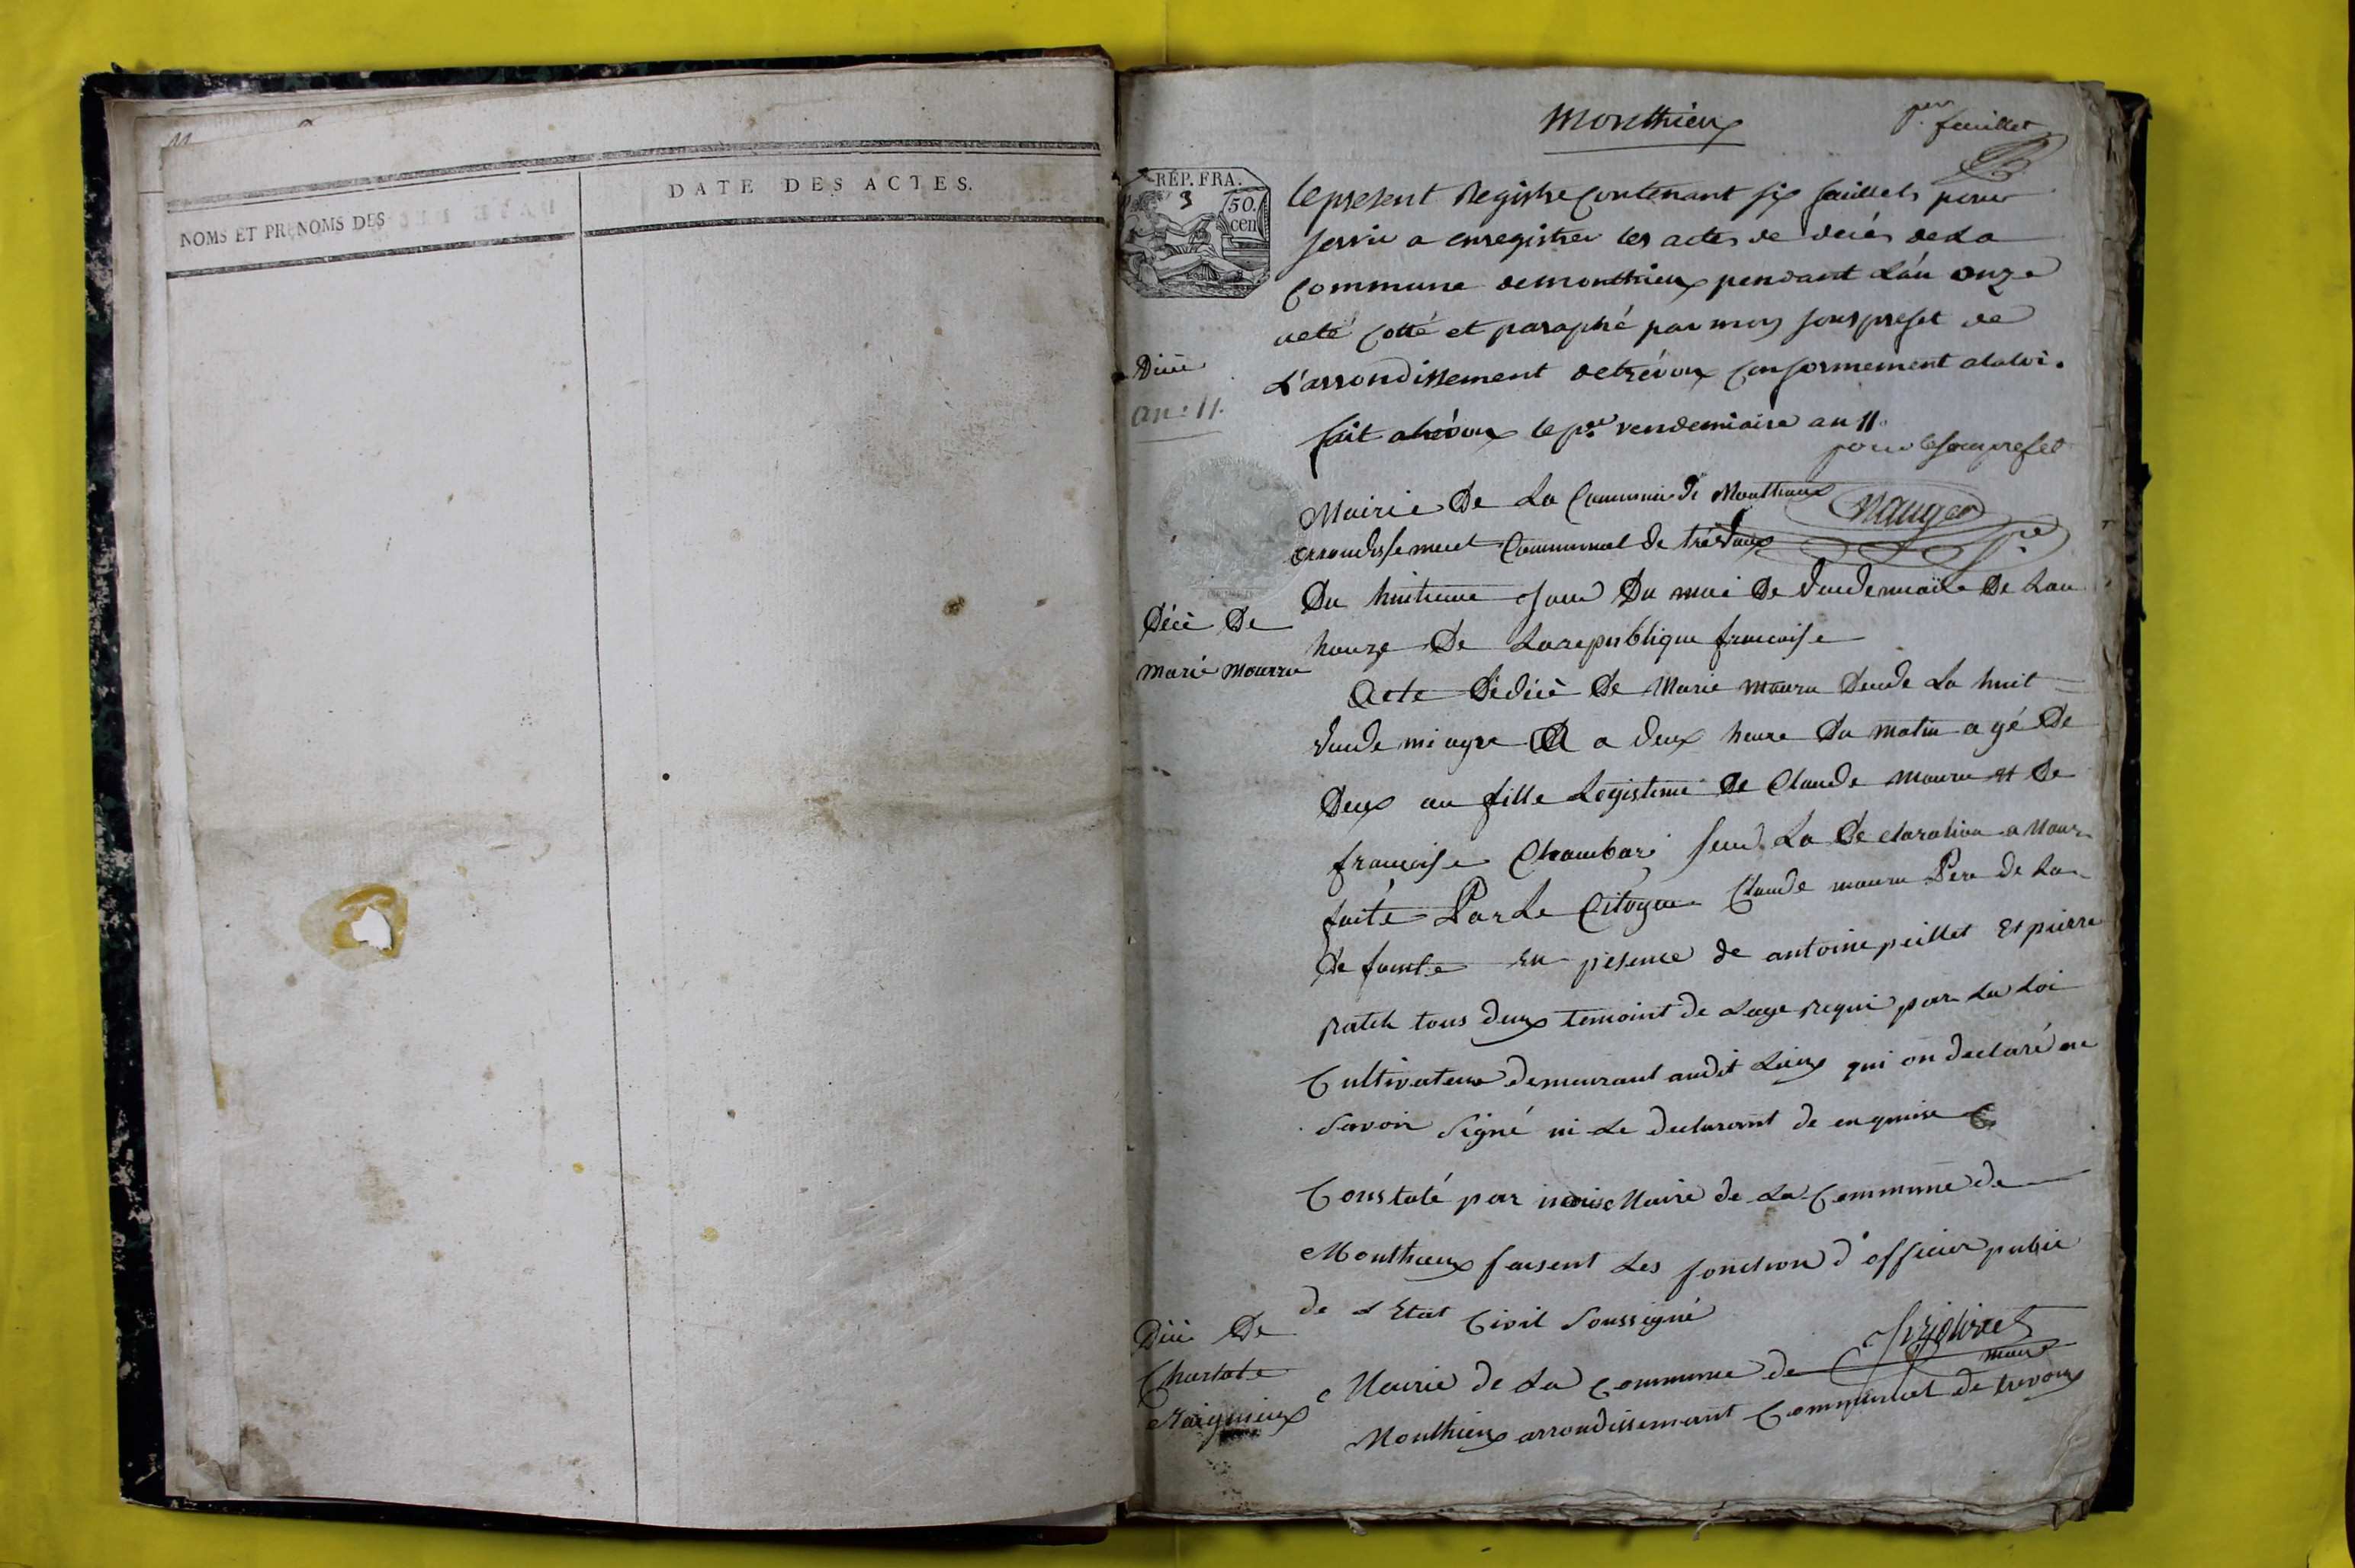 11
NOMS ET PRENOMS DES
DATE DES ACTES.
Monthieux
per feuillet
RÉP. FRA.
50.
cen
le present Registre Contenant six feuillets pour
servir a enregistrer les actes de décés de La
Commune de monthieux pendant L'an onze
a eté Cotté et paraphé par moy sous prefet de
L'arrondissement de trévoux Conformement a la loi.
fait a trévoux le per vendemiaire an 11.
pour le sous prefet
Décè
an: 11.
Mairie De La Commune de Monthieux
arrondissement Communal de trévoux
Du huitieme Jour Du moi De Vendemiaire De Lan
honze De La republique francoise
Décè De
marie mourru
Acte De décè De Marie mauru Décédé La huit
Vende miayre a deux heure Du matin agé De
Deux an fille Legistime De Claude mauru et De
francoise Chambari sur La De claration a Nour
faite Par Le Citoyen Claude mauru Pere de La
De funte En présence de antoine peillet Et pierre
tous deux temoint de Lage requi par La Loi
Cultivateur demeurant audit Lieux qui on declaré ne
Savoir Signé ni Le declarant de enquise
Constaté par Maire de La Commune de
Monthieux faisent Les fonction d'officier public
de L Etat Civil Soussigné
maire
Décè De
Charlote
Mairie de La Commune de
Monthieux arrondissemant Communal de trevoux